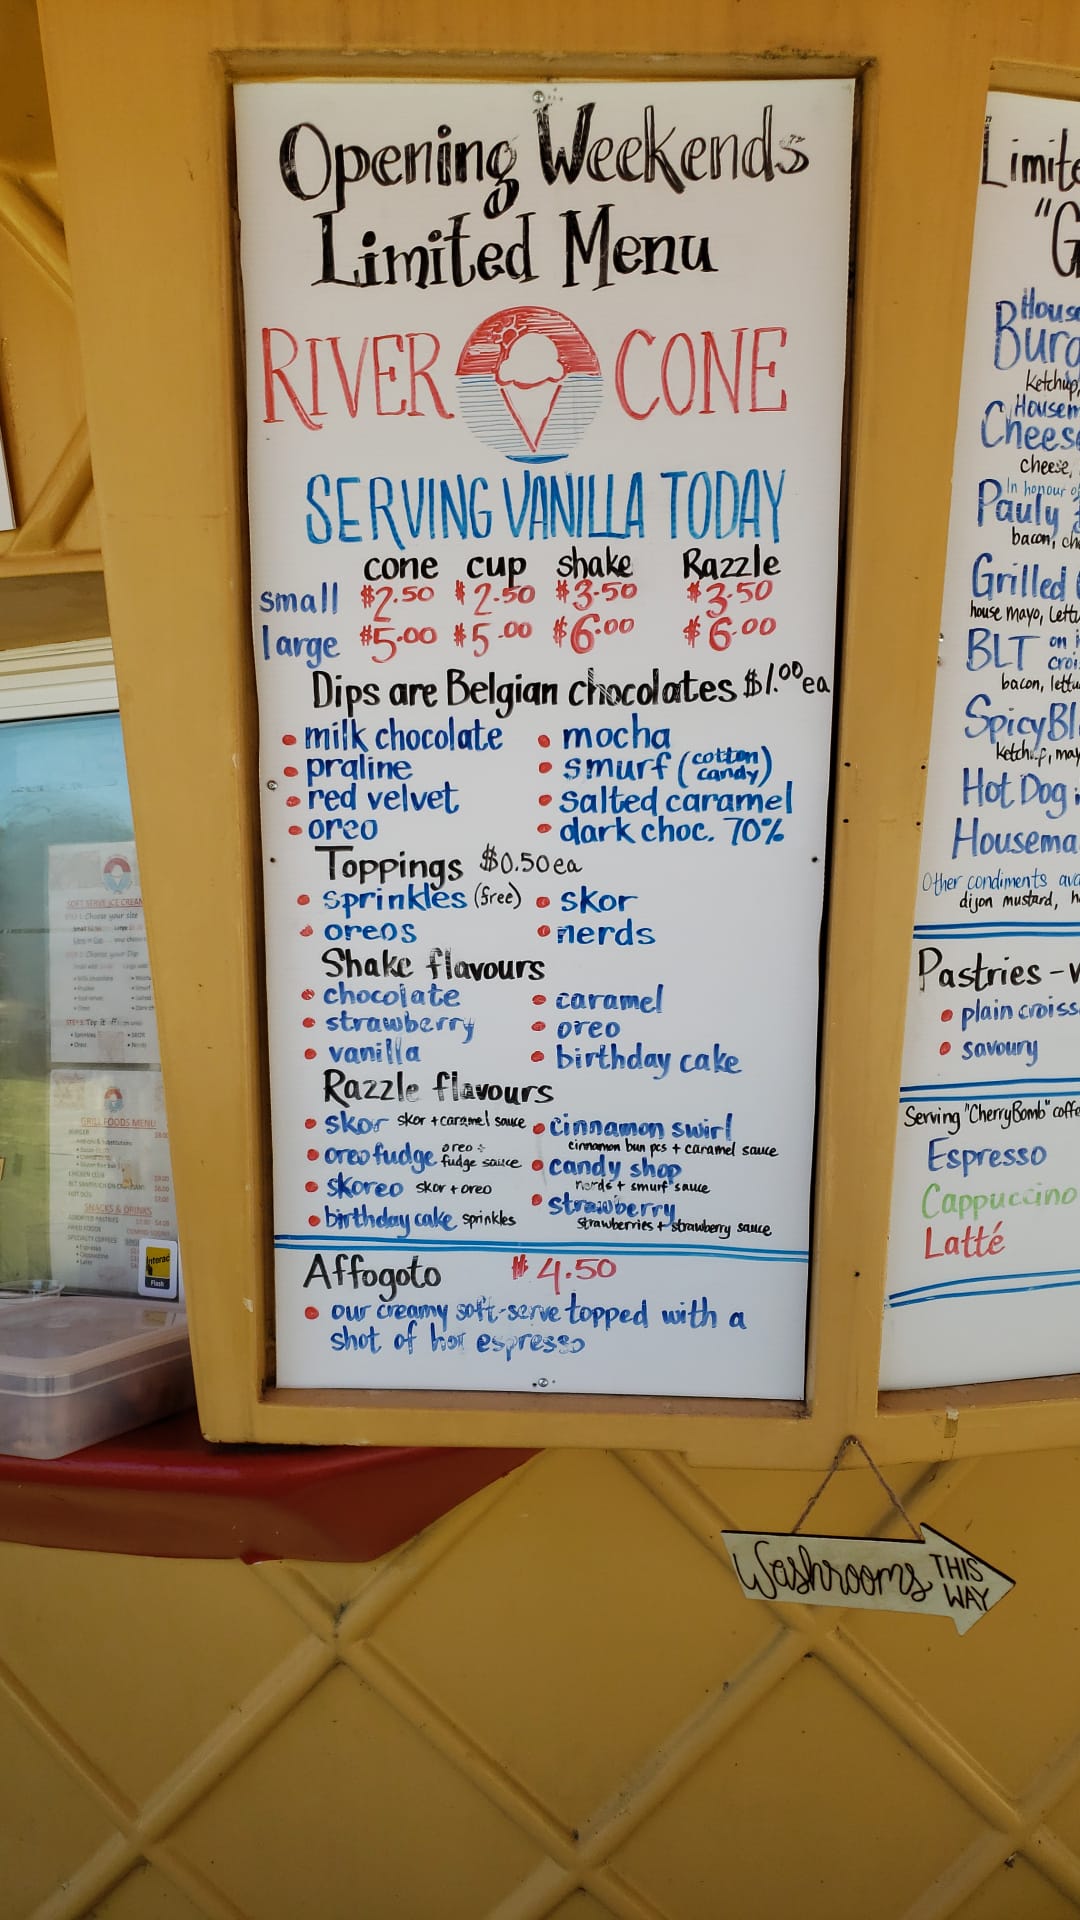 Opening Weekends
Limited Menu
RIVER CONE
SERVING VANILLA TODAY
cone cup shake Razzle
small $2.50 $2.50 $3.50 $3.50
large $5.00 $5.00 $6.00 $6.00
Dips are Belgian chocolates $1.00 ea
• milk chocolate • mocha
• praline • smurf (cotton candy)
• red velvet • salted caramel
• oreo • dark choc. 70%
Toppings $0.50 ea
• sprinkles (free) • skor
• oreos • nerds
Shake flavours
• chocolate • caramel
• strawberry • oreo
• vanilla • birthday cake
Razzle flavours
• skor skor + caramel sauce • cinnamon swirl
cinnamon bun pcs + caramel sauce
• oreo fudge oreo + fudge sauce • candy shop
nerds + smurf sauce
• skoreo skor + oreo • strawberry
strawberries + strawberry sauce
• birthday cake sprinkles
Affogoto $4.50
• our creamy soft-serve topped with a
shot of hot espresso
Washrooms THIS WAY
"G
ketchup,
cheese,
In honour
Pauly
bacon,
Grilled
house mayo,
BLT on
bacon,
ketchup,
Hot Dog
Other condiments
dijon mustard,
Pastries -
• plain
• savoury
Serving "CherryBomb"
Espresso
Cappuccino
Latté
SOFT SERVE ICE CREAM
GRILL FOODS MENU
SNACKS & DRINKS
Interac
Flash